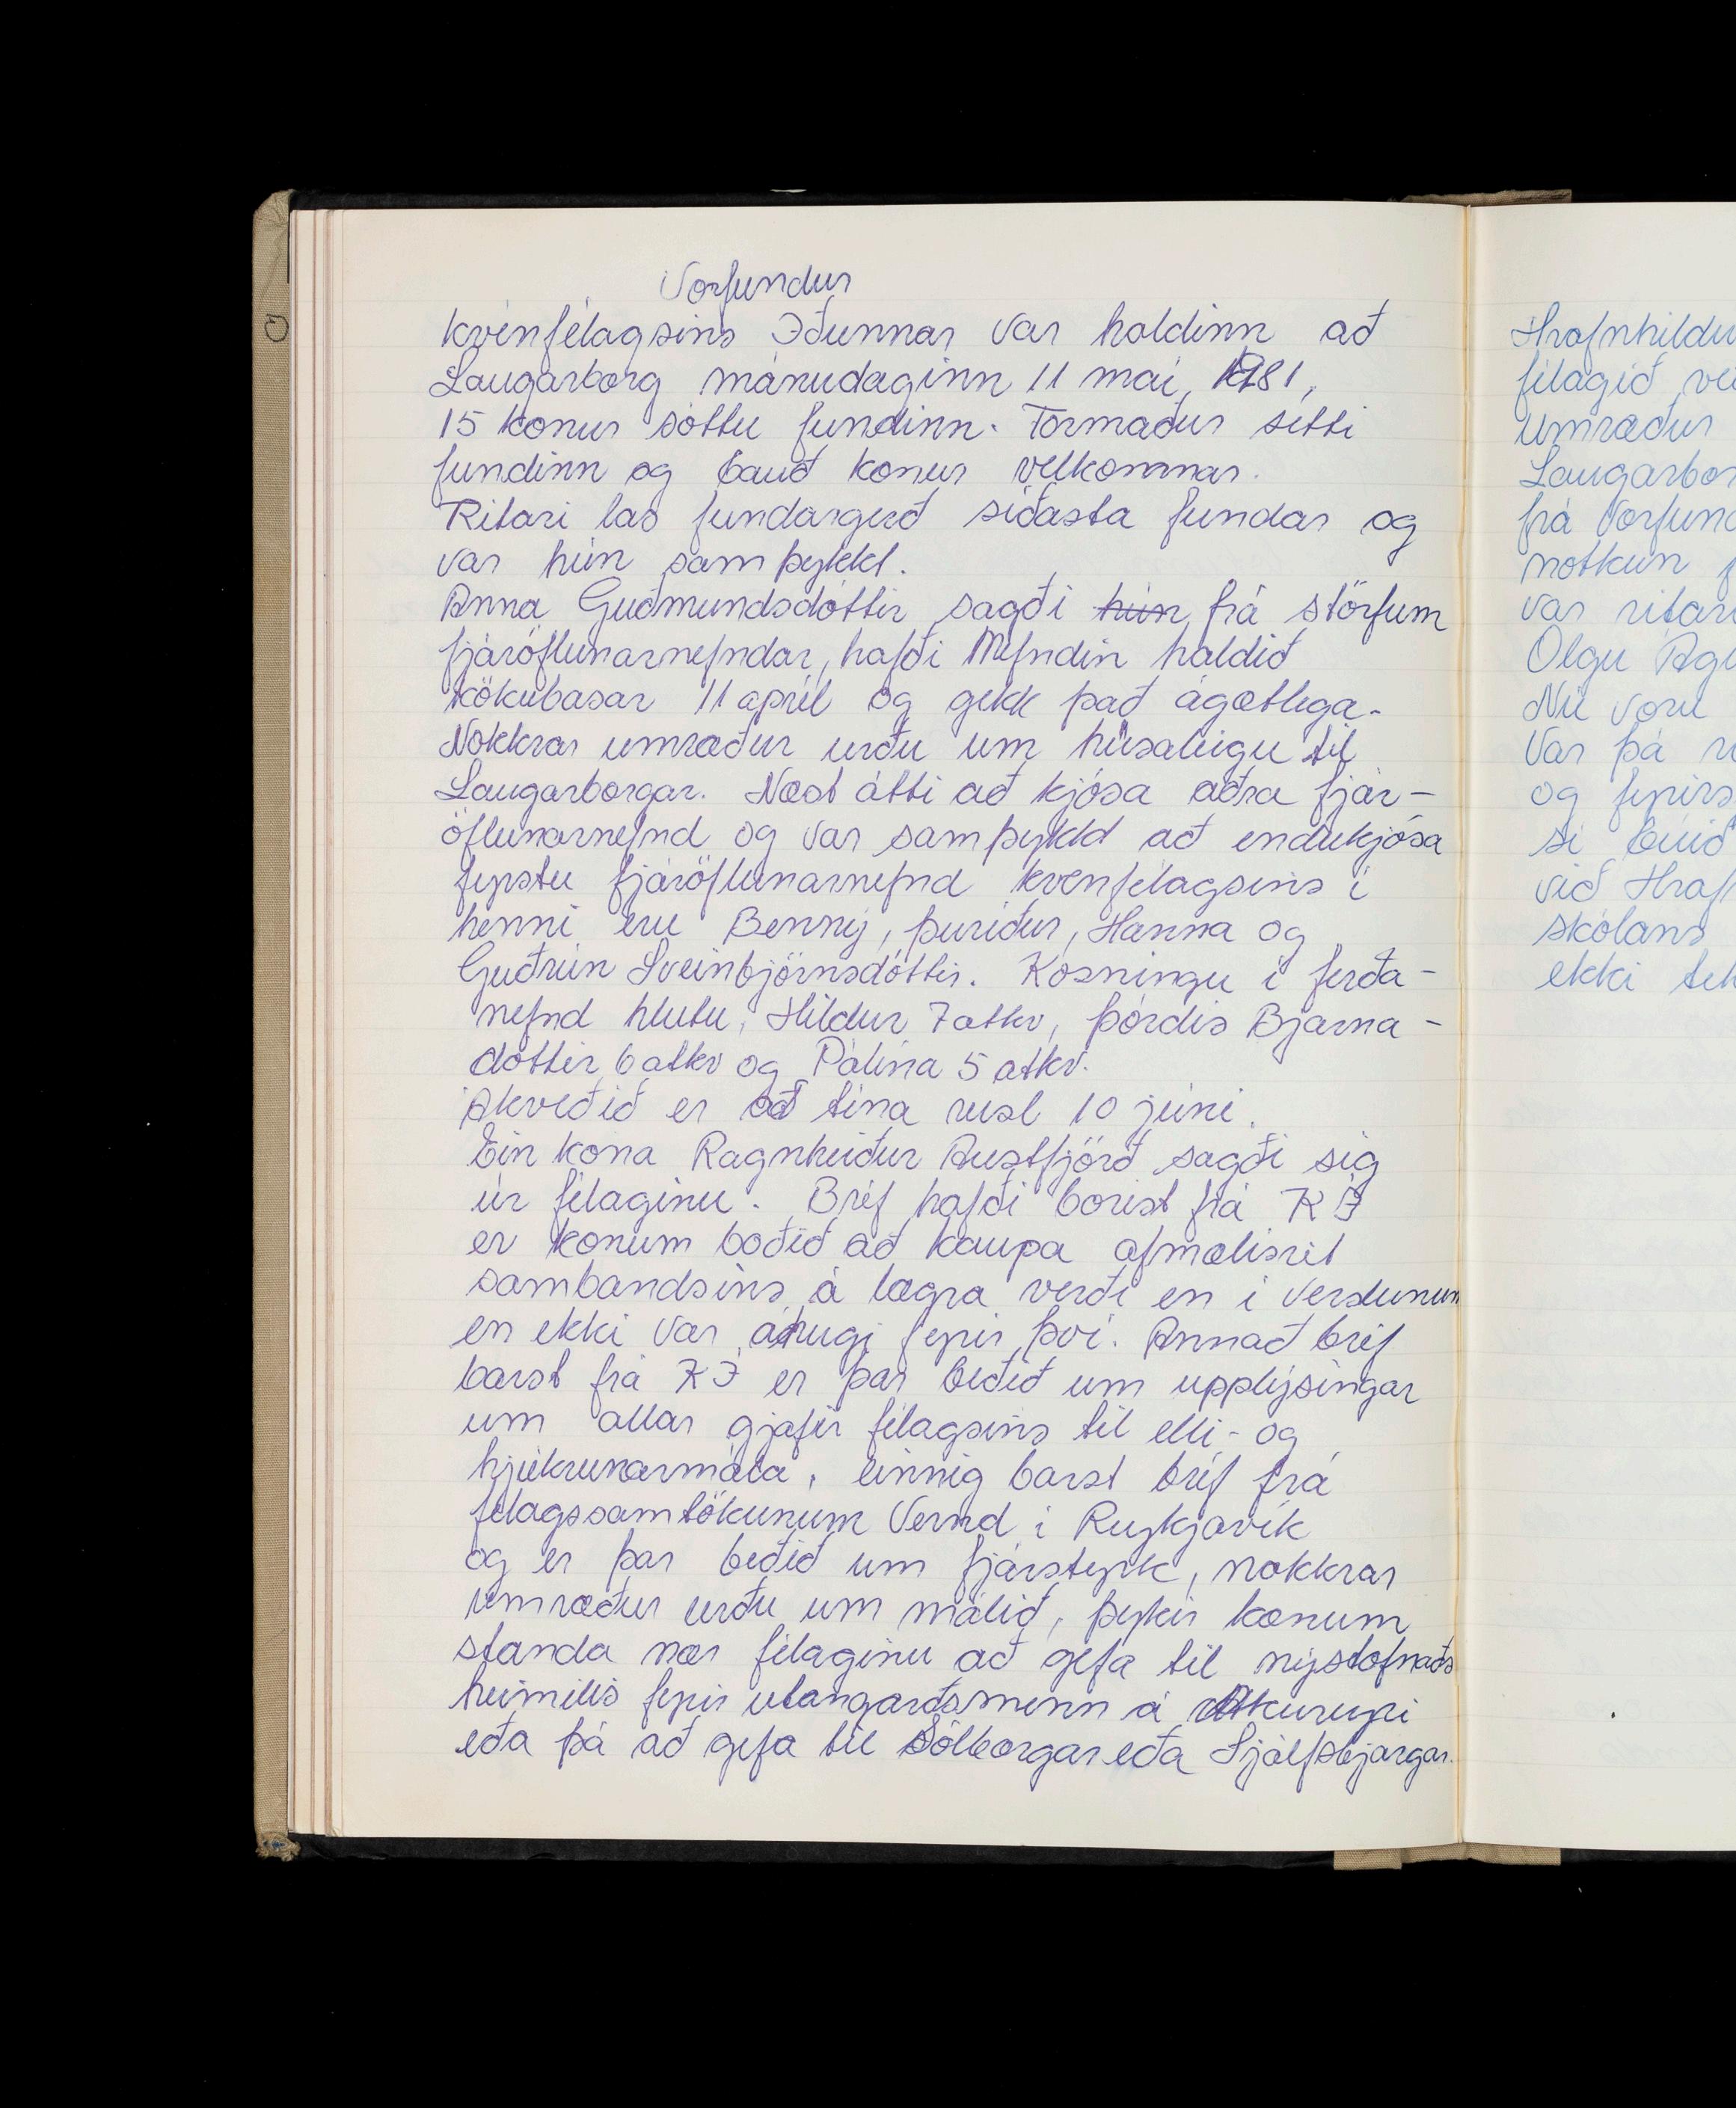 Vorfundur
kvenfélagsins Iðunnar var haldinn að
Laugarborg mánudaginn 11 maí, 1981,
15 konur sóttu fundinn. Formaður setti
fundinn og bauð konur velkomnar.
Ritari las fundargerð síðasta fundar og
var hún samþykkt.
Anna Guðmundsdóttir sagði hún frá störfum
fjáröflunarnefndar, hafði Nefndin haldið
kökubasar 11 apríl og gekk það ágætlega.
Nokkrar umræður urðu um húsaleigu til
Laugarborgar. Næst átti að kjósa aðra fjár-
öflunarnefnd og var samþykkt að endurkjósa
fyrstu fjáröflunarnefnd kvenfélagsins í
henni eru Benný, Þuríður, Hanna og
Guðrún Sveinbjörnsdóttir. Kosningu í ferða-
nefnd hlutu, Hildur 7 atkv, Þórdís Bjarna-
dóttir 6 atkv og Pálína 5 atkv.
Ákveðið er að tína rusl 10 júní.
Ein kona Ragnheiður Austfjörð sagði sig
úr félaginu. Bréf hafði borist frá KÍ
er konum boðið að kaupa afmælisrit
sambandsins á lægra verði en í verslunum
en ekki var áhugi fyrir því. Annað bréf
barst frá KÍ er þar beðið um upplýsingar
um allar gjafir félagsins til elli- og
hjúkrunarmála, einnig barst bréf frá
félagssamtökunum Vernd í Reykjavík
og er þar beðið um fjárstyrk, nokkrar
umræður urðu um málið, þykir konum
standa nær félaginu að gefa til nýstofnaðs
heimilis fyrir utangarðsmenn á Akureyri
eða þá að gefa til Sólborgar eða Sjálfsbjargar.
Hrafnhildu
félagið ve
umræður
Laugarbor
frá Vorfund
notkun
var ritari
Olgu Ág
Nú voru
Var þá
og fyrirs
sé búið
við Hraf
skólans
ekki tek